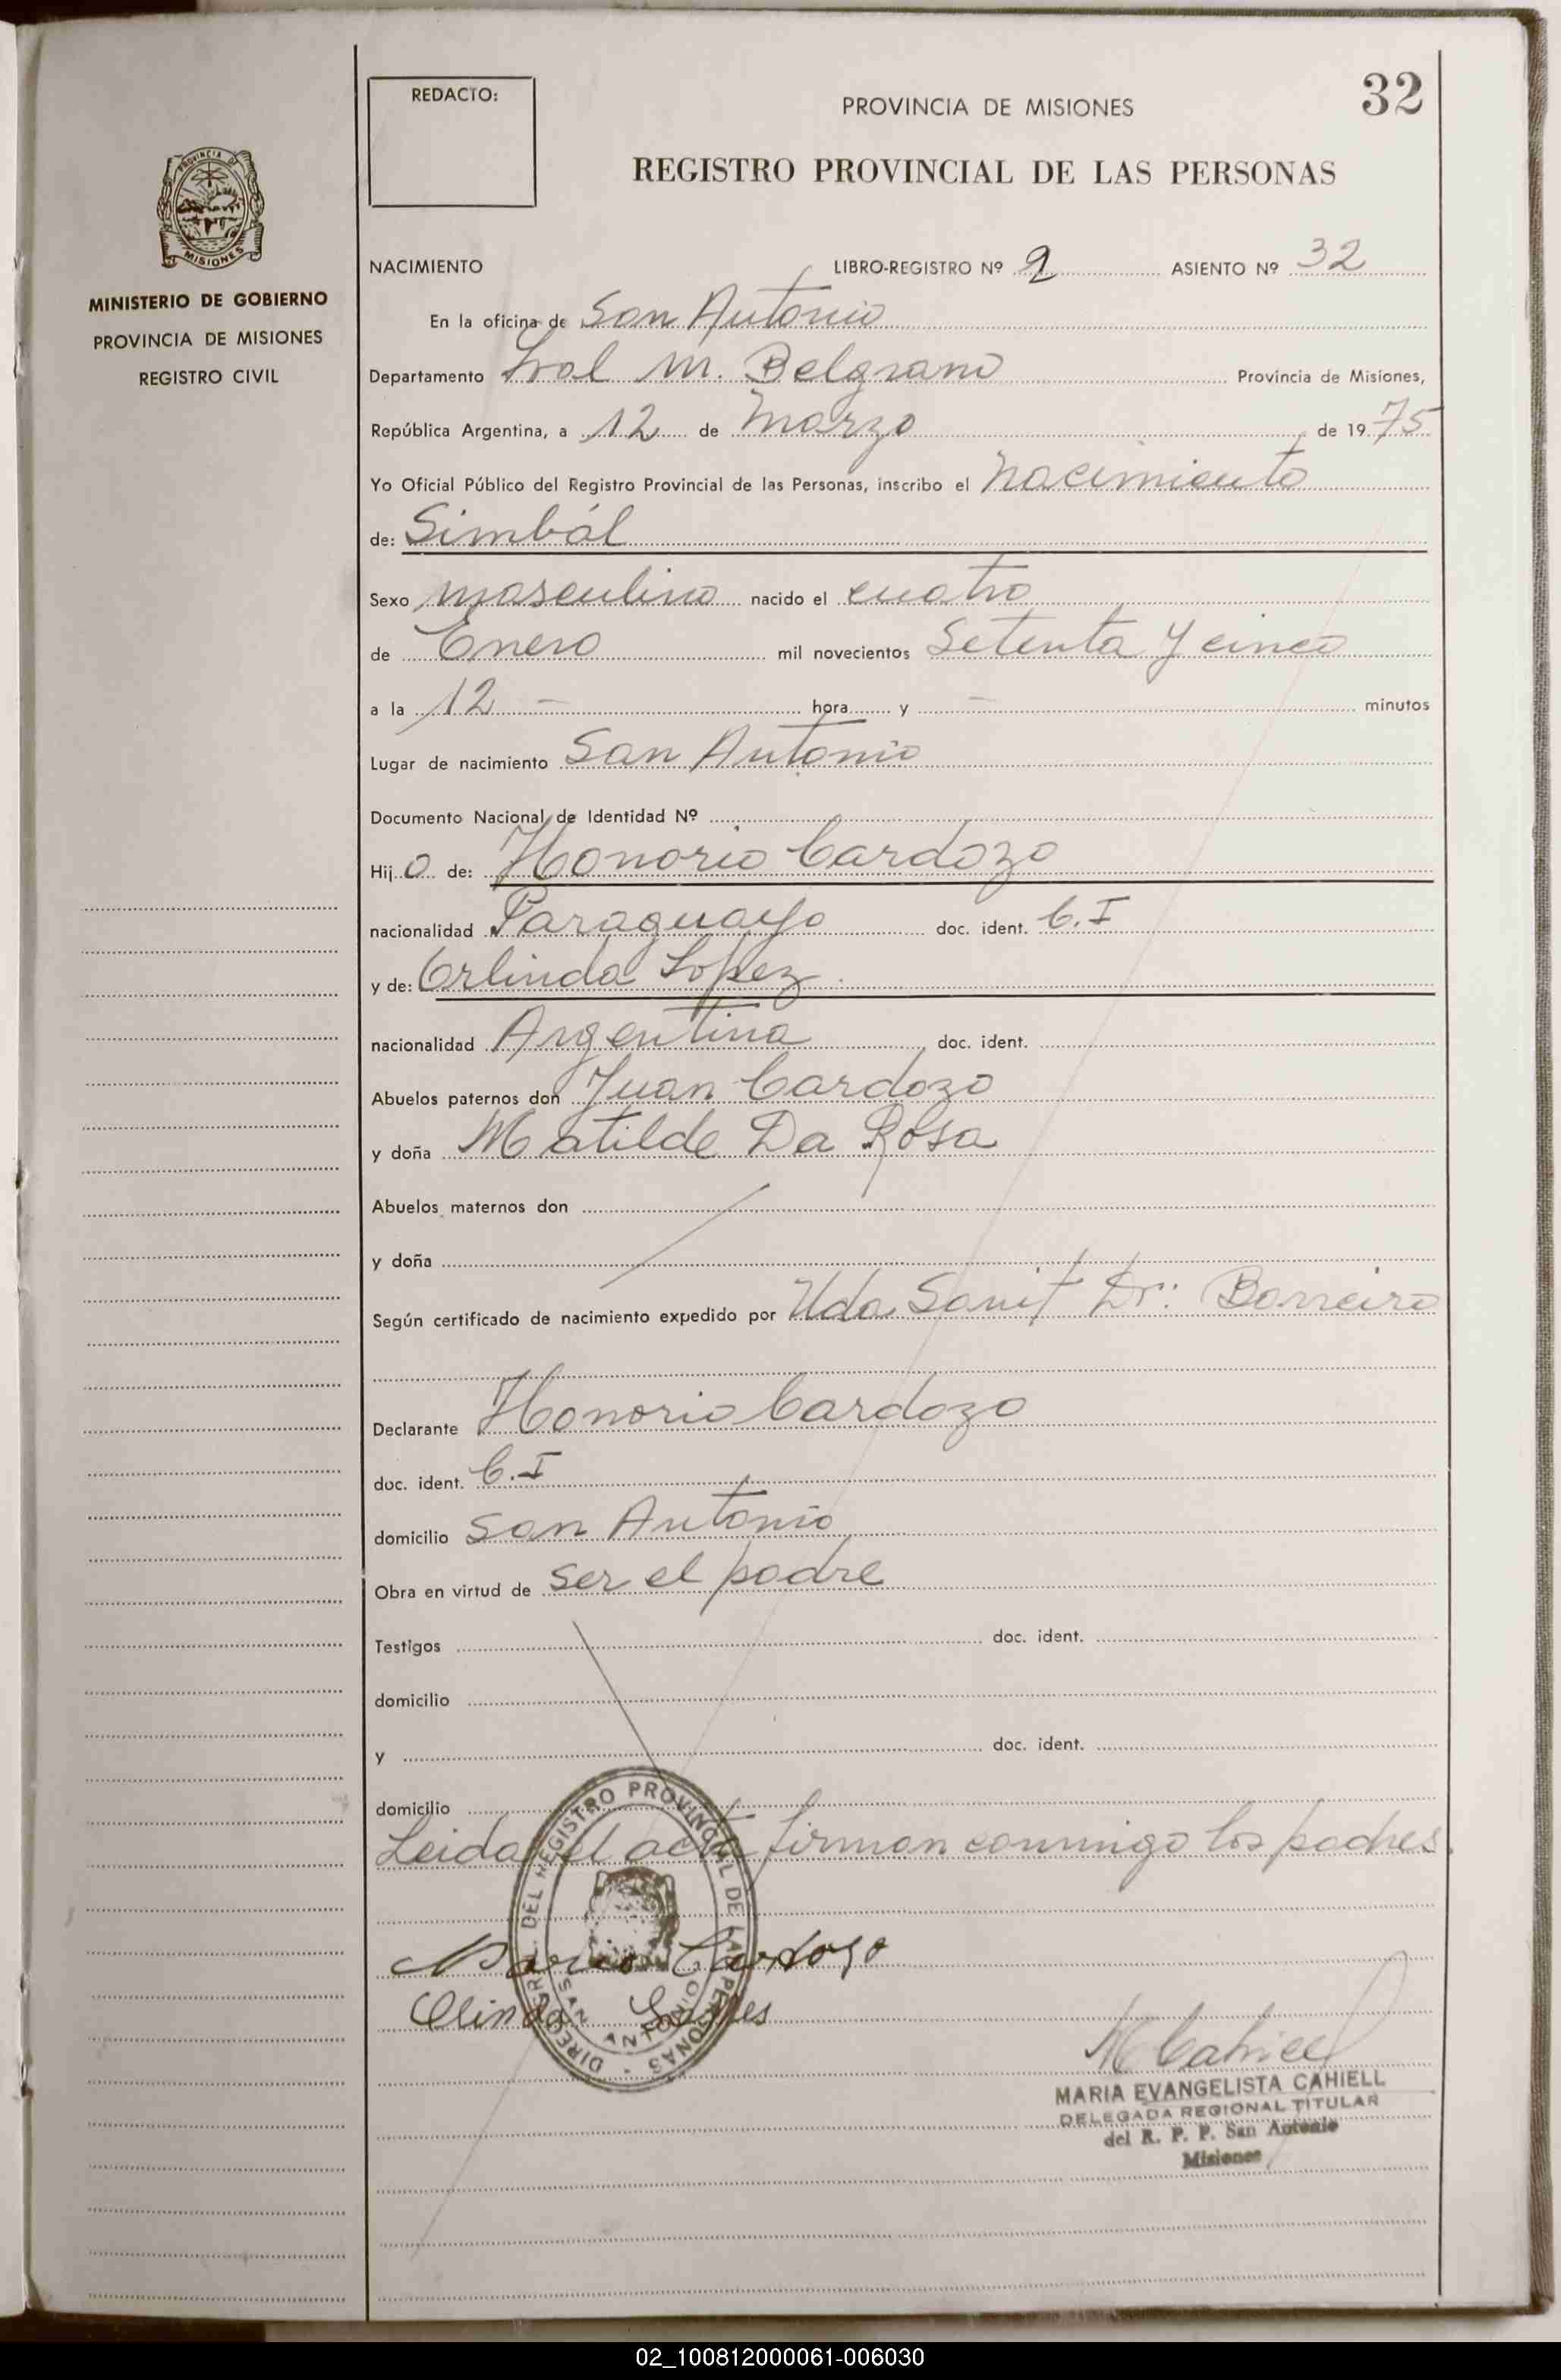 32
REDACTO:
PROVINCIA DE MISIONES
REGISTRO PROVINCIAL DE LAS PERSONAS
PROVINCIA DE
MISIONES
MINISTERIO DE GOBIERNO
PROVINCIA DE MISIONES
REGISTRO CIVIL
NACIMIENTO LIBRO-REGISTRO Nº 2 ASIENTO Nº 32
En la oficina de San Antonio
Departamento Gral M. Belgrano Provincia de Misiones,
República Argentina, a 12 de Marzo de 1975
Yo Oficial Público del Registro Provincial de las Personas, inscribo el Nacimiento
de: Simbál
Sexo masculino nacido el cuatro
de Enero mil novecientos Setenta y cinco
a la 12 - hora y - minutos
Lugar de nacimiento San Antonio
Documento Nacional de Identidad Nº
Hijo de: Honorio Cardozo
nacionalidad Paraguayo doc. ident. C.I
y de: Orlinda Lopez
nacionalidad Argentina doc. ident.
Abuelos paternos don Juan Cardozo
y doña Matilde Da Rosa
Abuelos maternos don
y doña
Según certificado de nacimiento expedido por Uda Sanit Dr: Borreiro
Declarante Honorio Cardozo
doc. ident. C.I
domicilio San Antonio
Obra en virtud de ser el padre
Testigos doc. ident.
domicilio
y doc. ident.
domicilio
Leida el acta firman conmigo los padres.
DEL REGISTRO PROVINCIAL DE LAS PERSONAS
SAN ANTONIO
Cardozo
M Cahiell
MARIA EVANGELISTA CAHIELL
DELEGADA REGIONAL TITULAR
del R. P. P. San Antonio
Misiones
02_100812000061-006030